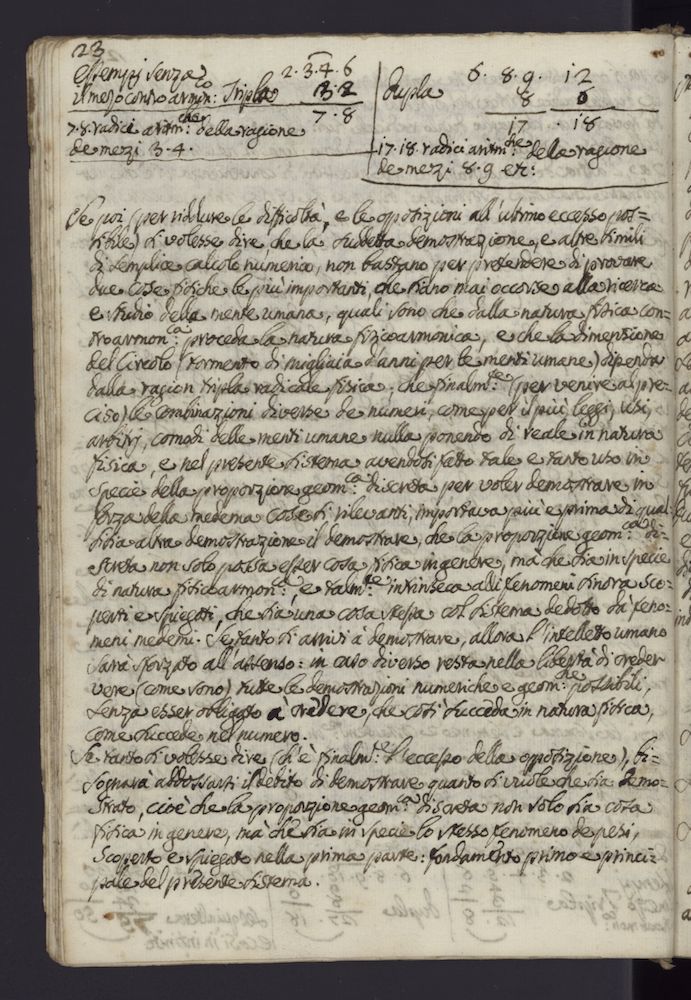 23
Essempj senza
il mezo contro armon:co Tripla
2. 3. 4. 6
3 2
7. 8
7. 8. radici aritm:che della ragione
de mezi 3. 4.
Dupla
6. 8. 9. 12
8 6
17 . 18
17. 18. radici aritm:che della ragione
de mezi 8. 9 etc:
Se poi (per riddure le difficoltà, e le opposizioni all'ultimo eccesso pos=
sibile) si volesse dire, che la suddetta demostrazione, e altre simili
di semplice calcolo numerico, non bastano per pretendere di provare
due cose fisiche le più importanti, che siano mai occorse alla ricerca
e studio della mente umana, quali sono che dalla natura fisica con=
troarmon:ca proceda la natura fizicoarmonica, e che la dimensione
del Circolo (tormento di migliaia d'anni per le menti umane) dipenda
dalla ragion tripla radicale fisica; che finalm:te (per venire al pre=
ciso) le combinazioni diverse de numeri, come per il più leggi, usi,
arbitrj, comodi delle menti umane nulla ponendo di reale in natura
fisica, e nel presente sistema avendosi fatto tale e tanto uso in
specie della proporzione geom:ca discreta per voler demostrare in
forza della medema cose sì rilevanti, importava più e prima di qual
sisia altra demostrazione il demostrare, che la proporzione geom:ca di=
screta non solo possa esser cosa fisica in genere, mà che sia in specie
di natura fisicoarmon:ca, e talm:te intrinseca alli fenomeni sinora sco=
perti e spiegati, che sia una cosa stessa col sistema dedotto dà feno=
meni medemi. Se tanto si arrivi à demostrare, allora l'intelletto umano
sarà sforzato all'assenso: in caso diverso resta nella libertà di creder
vere (come sono) tutte le demostrazioni numeriche e geom:che possibili,
senza esser obligato à credere, che così succeda in natura fisica,
come succede nel numero.
Se tanto si volesse dire (ch'è finalm:te l'eccesso della opposizione), bi=
sognarà addossarsi il debito di demostrare quanto si vuole che sia demo=
strato, cioè che la proporzione geom:ca discreta non solo sia cosa
fisica in genere, mà che sia in specie lo stesso fenomeno de pesi,
scoperto e spiegato nella prima parte: fondamento primo e princi=
pale del presente sistema.